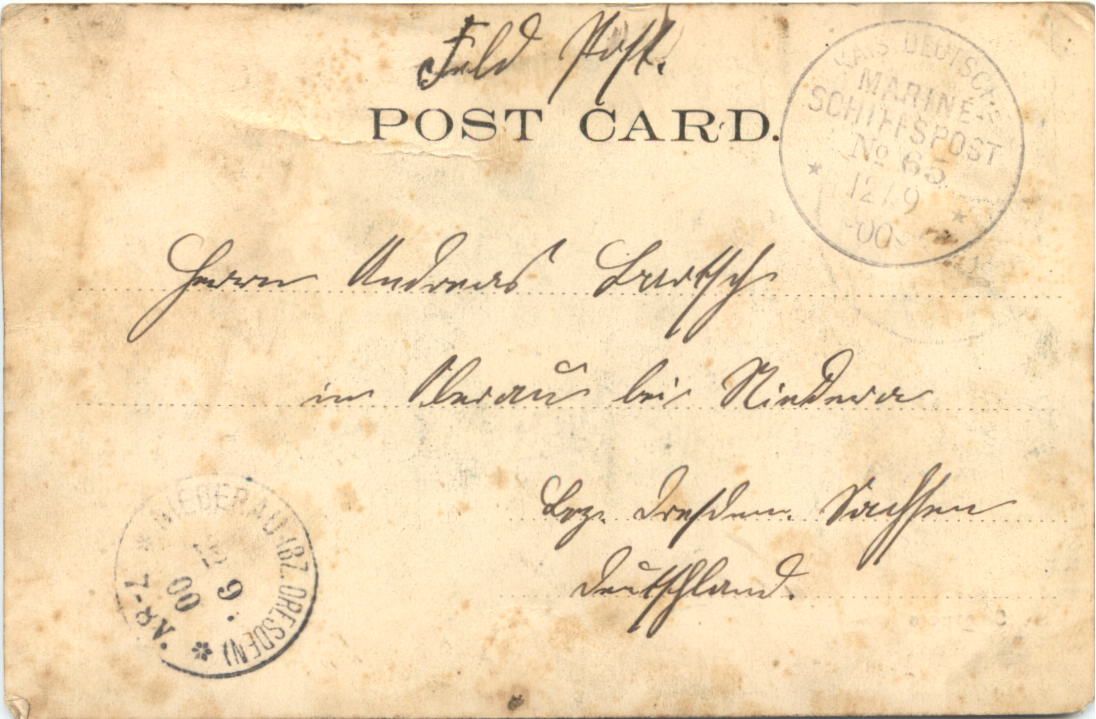 Feld Post.
POST CARD.
KAIS. DEUTSCHE
MARINE-
SCHIFFSPOST
No 65
* 12/9 *
00
Herrn Andreas Bartsch
in Oberau bei Niederau
Bez. Dresden. Sachsen
Deutschland.
* NIEDERAU (BZ. DRESDEN) *
9
00